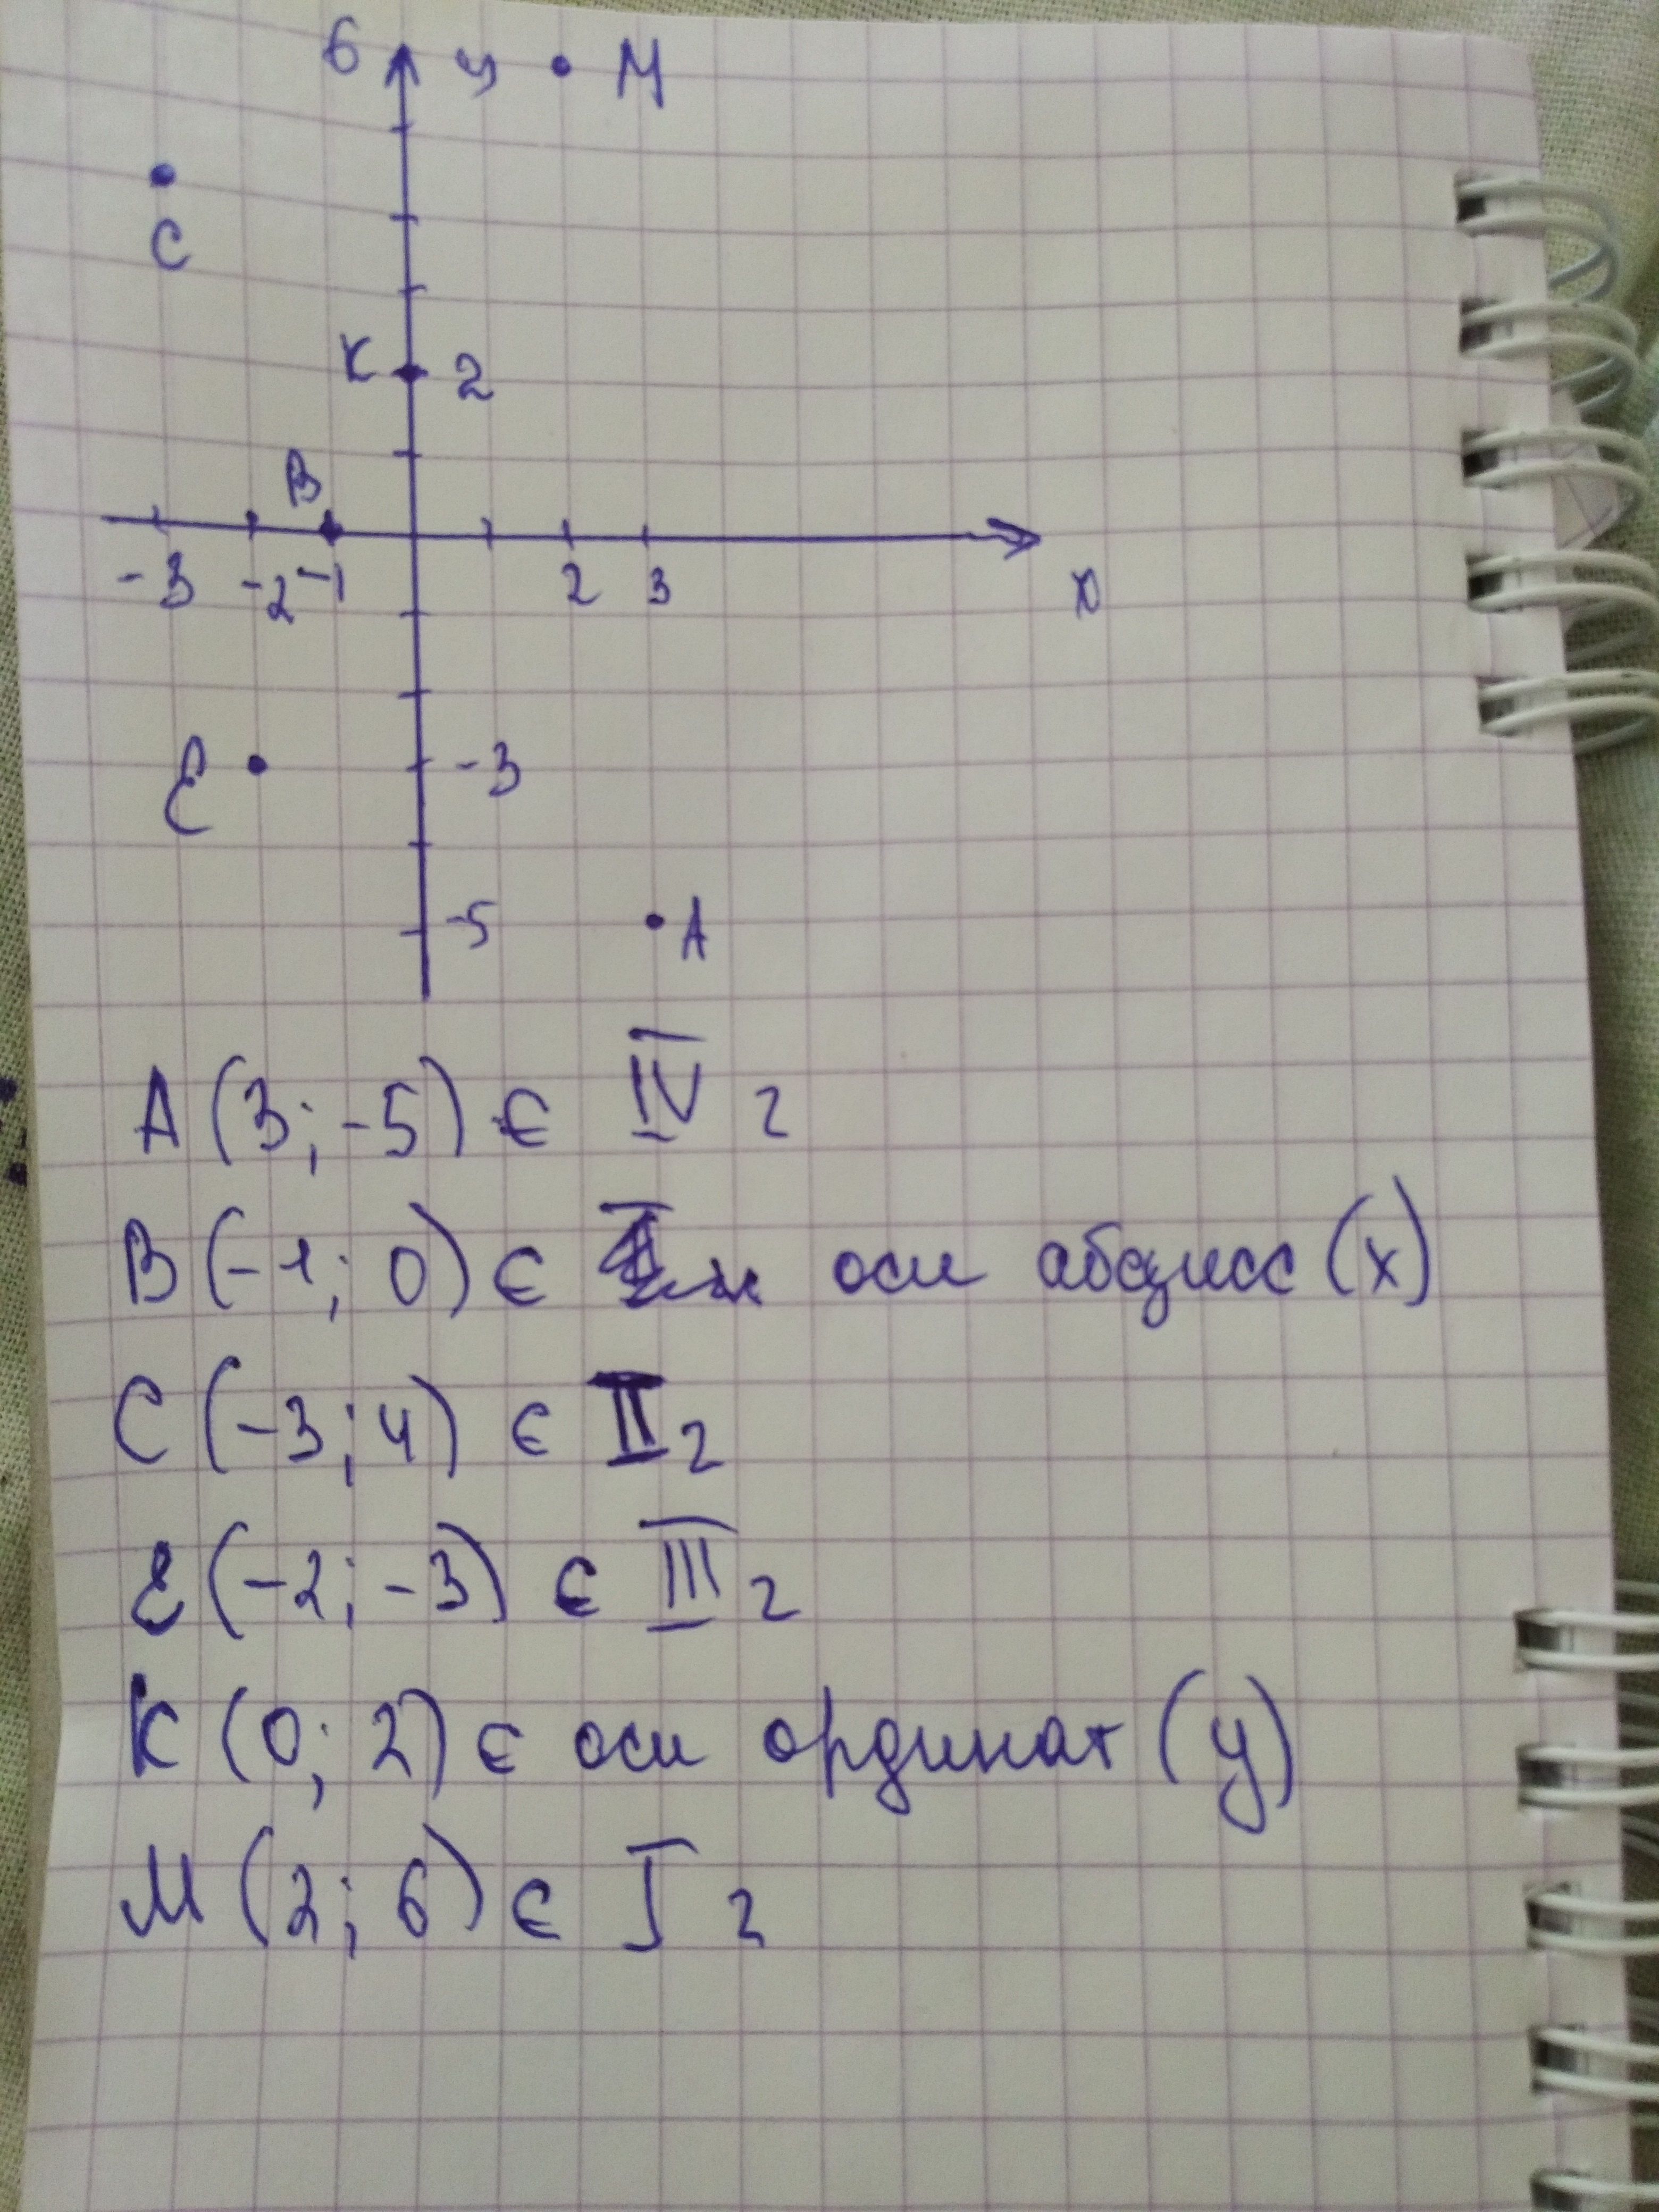 6 у М
С
К 2
В
-3 -2 -1 2 3 х
Е -3
-5 А
А (3; -5) ∈ IV г
В (-1; 0) ∈ оси абсцисс (х)
С (-3; 4) ∈ II г
Е (-2; -3) ∈ III г
К (0; 2) ∈ оси ординат (у)
М (2; 6) ∈ I г